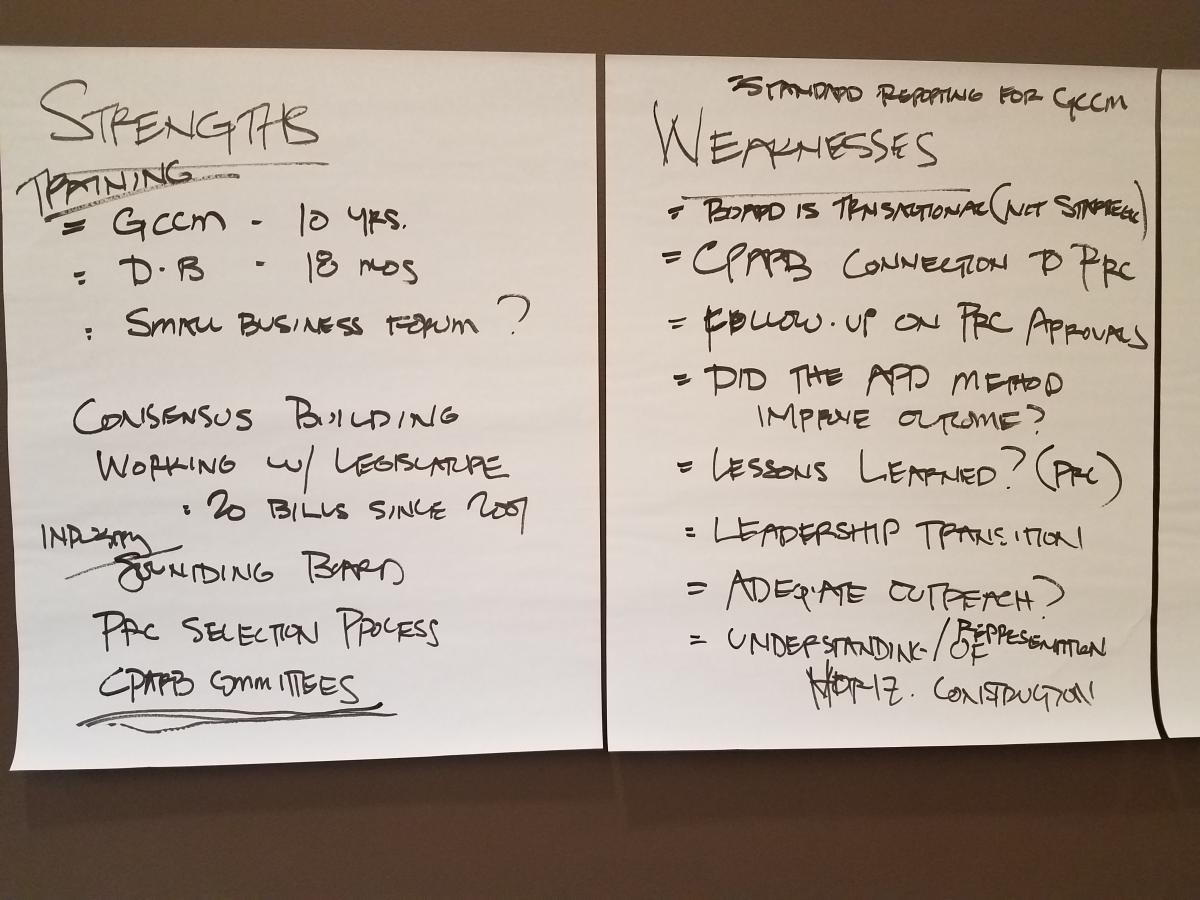 STRENGTHS
TRAINING
= GCCM - 10 YRS.
= D-B - 18 MOS
= SMALL BUSINESS FORUM ?
CONSENSUS BUILDING
WORKING W/ LEGISLATURE
= 20 BILLS SINCE 2007
INDUSTRY
SOUNDING BOARD
PRC SELECTION PROCESS
CPARB COMMITTEES
= STANDARD REPORTING FOR GCCM
WEAKNESSES
= BOARD IS TRANSACTIONAL (NOT STRATEGIC)
= CPARB CONNECTION TO PRC
= FOLLOW-UP ON PRC APROVALS
= DID THE APD METHOD
IMPROVE OUTCOME?
= LESSONS LEARNED? (PRC)
= LEADERSHIP TRANSITION
= ADEQUATE OUTREACH?
= UNDERSTANDING / REPRESENTATION
OF
HORIZ. CONSTRUCTION